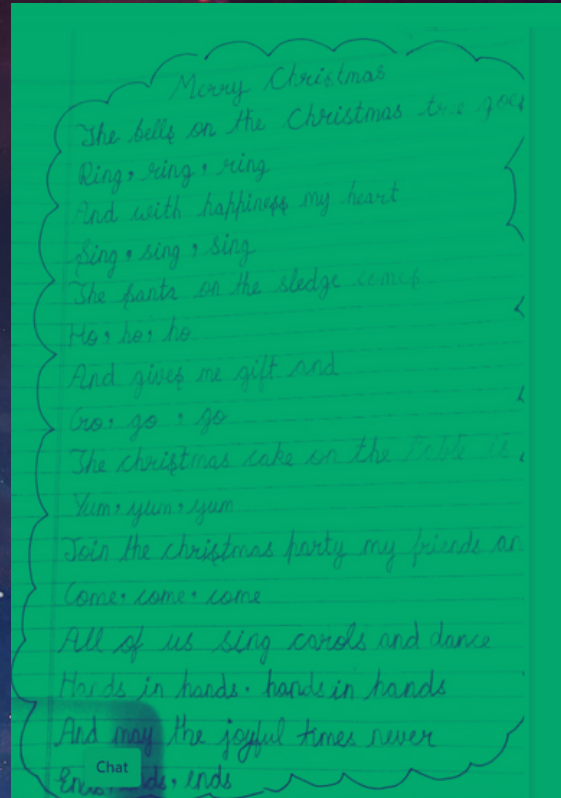 Merry Christmas
The bells on the Christmas tree goes
Ring, ring, ring
And with happiness my heart
Sing, sing, sing
The santa on the sledge comes
Ho, ho, ho
And gives me gift and
Go, go, go
The christmas cake on the table is
Yum, yum, yum
Join the christmas party my friends an
Come, come, come
All of us sing carols and dance
Hands in hands, hands in hands
And may the joyful times never
ends
Chat